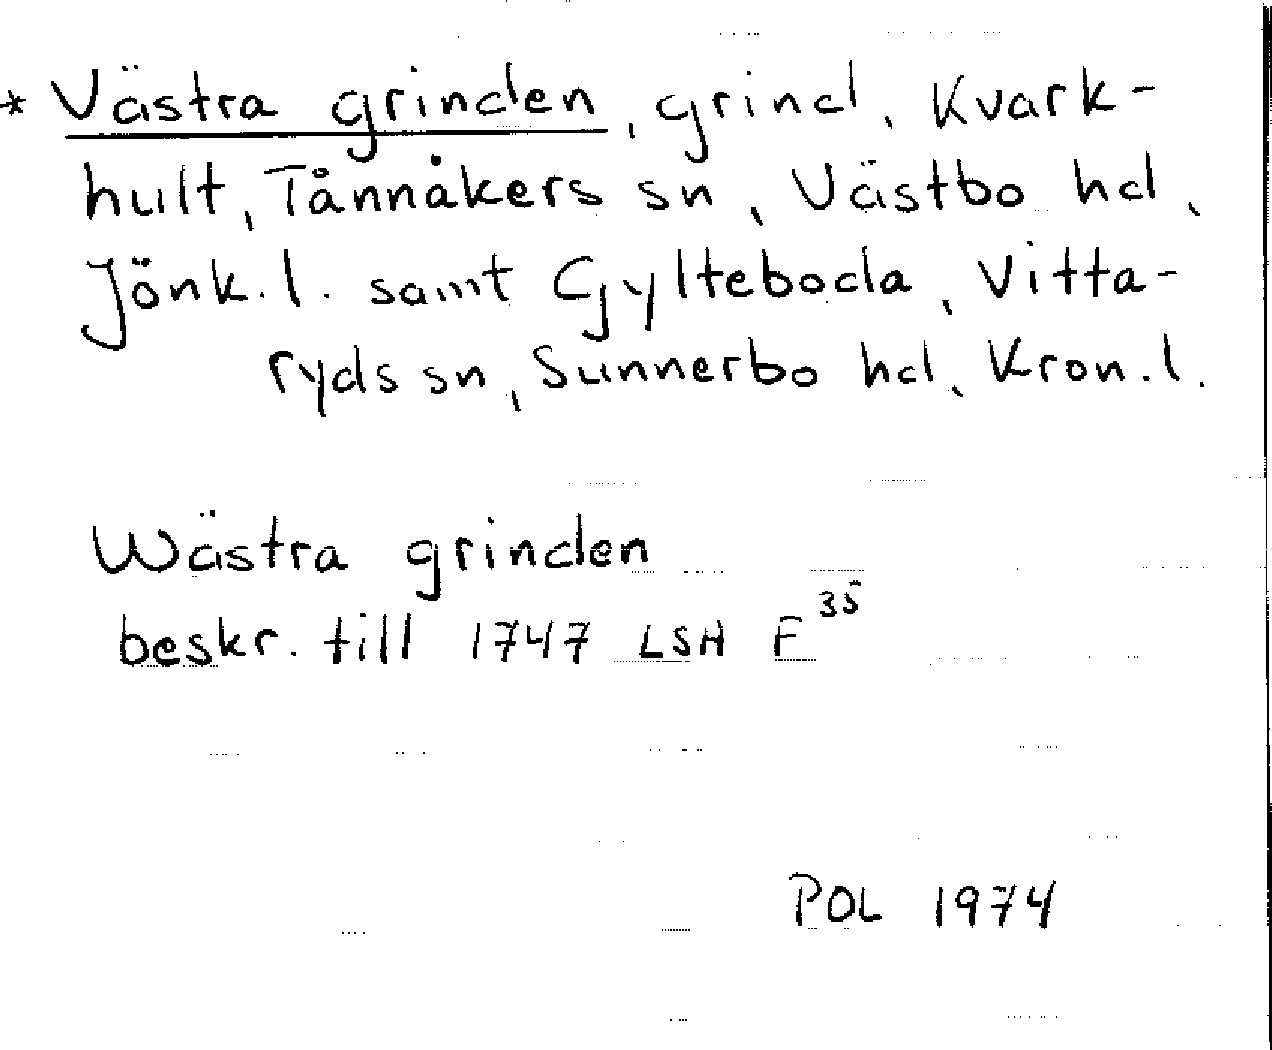 * Västra grinden, grind, Kvark-
hult, Tånnåkers sn, Västbo hd,
Jönk.l. samt Gylteboda, Vitta-
ryds sn, Sunnerbo hd, Kron.l.
Wästra grinden
beskr. till 1747 LSH F 35
POL 1974